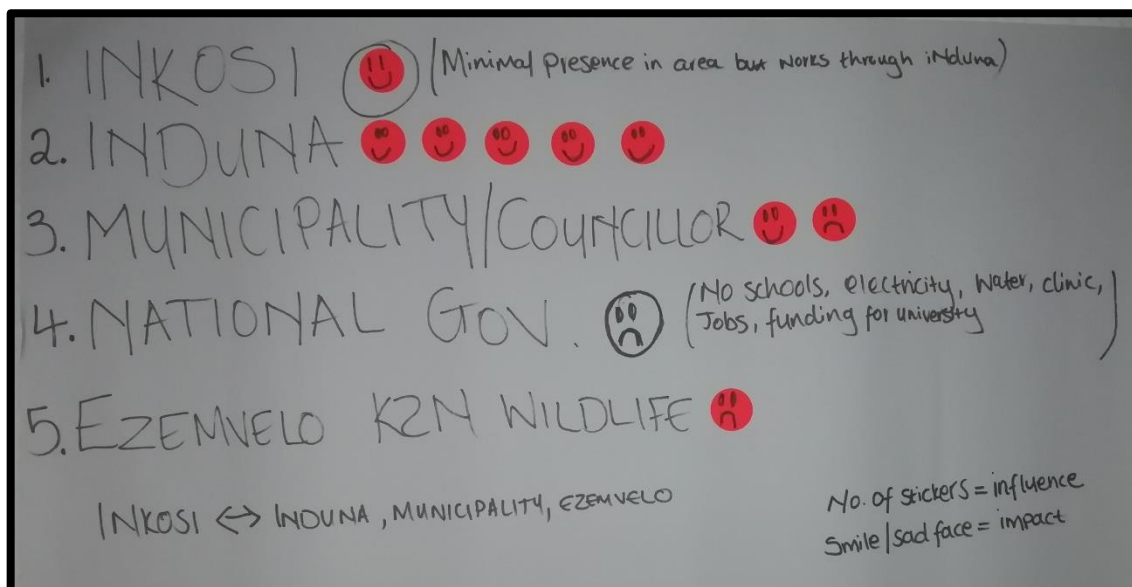 1. INKOSI (Minimal Presence in area but works through iNduna)
2. INDUNA
3. MUNICIPALITY/COUNCILLOR
4. NATIONAL GOV. (No schools, electricity, water, clinic,
Jobs, funding for university)
5. EZEMVELO KZN WILDLIFE
INKOSI <-> INDUNA, MUNICIPALITY, EZEMVELO
No. of stickers = influence
Smile/sad face = impact